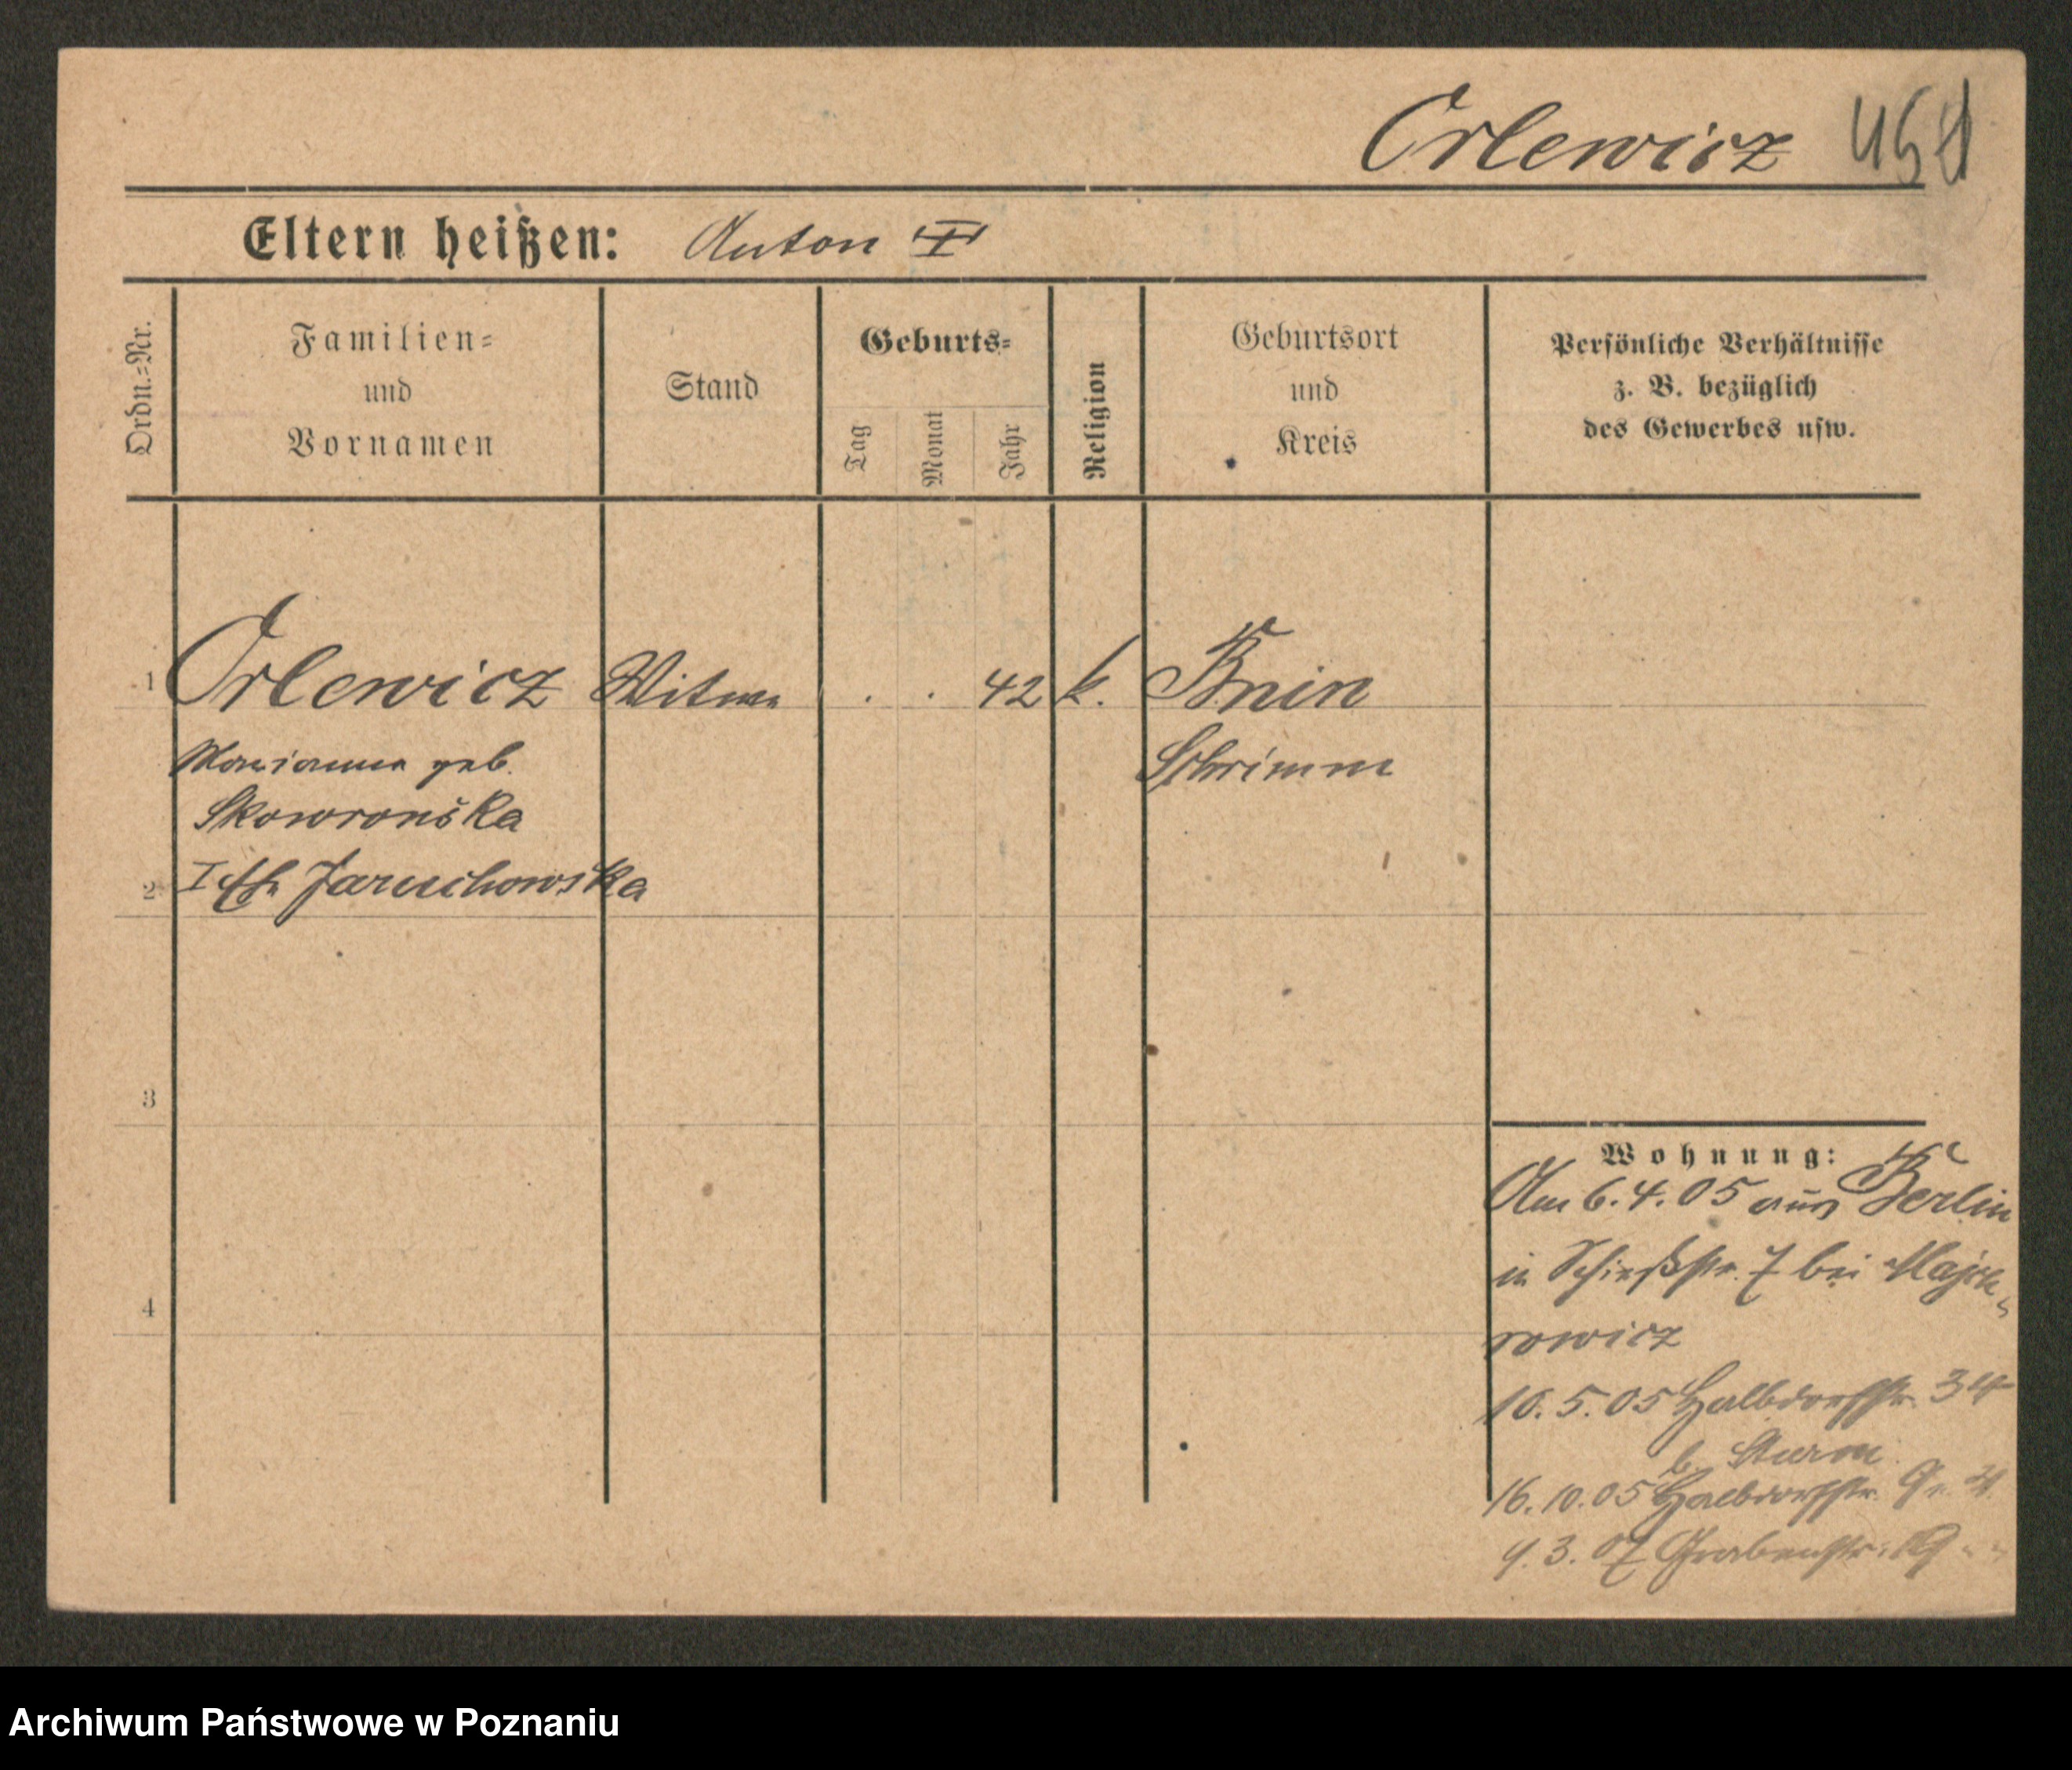 Orlewicz
Eltern heißen: Anton II
Ordn.=Nr.
Familien=
und
Vornamen
Stand
Geburts=
Tag
Monat
Jahr
Religion
Geburtsort
und
Kreis
Persönliche Verhältnisse
z. B. bezüglich
des Gewerbes usw.
1 Orlewicz Witwe . . 42 k. Bnin
Marianna geb. Schrimm
Skowrońska
2 I Eh Jaruchowska
3
4
Wohnung:
Am 6.4.05 aus Berlin
in Schießstr. 7 bei Majche-
rowicz
10.5.05 Halbdorfstr. 34
b.
16.10.05 Halbdorfstr.
9.3.07 Grabenstr. 19
Archiwum Państwowe w Poznaniu